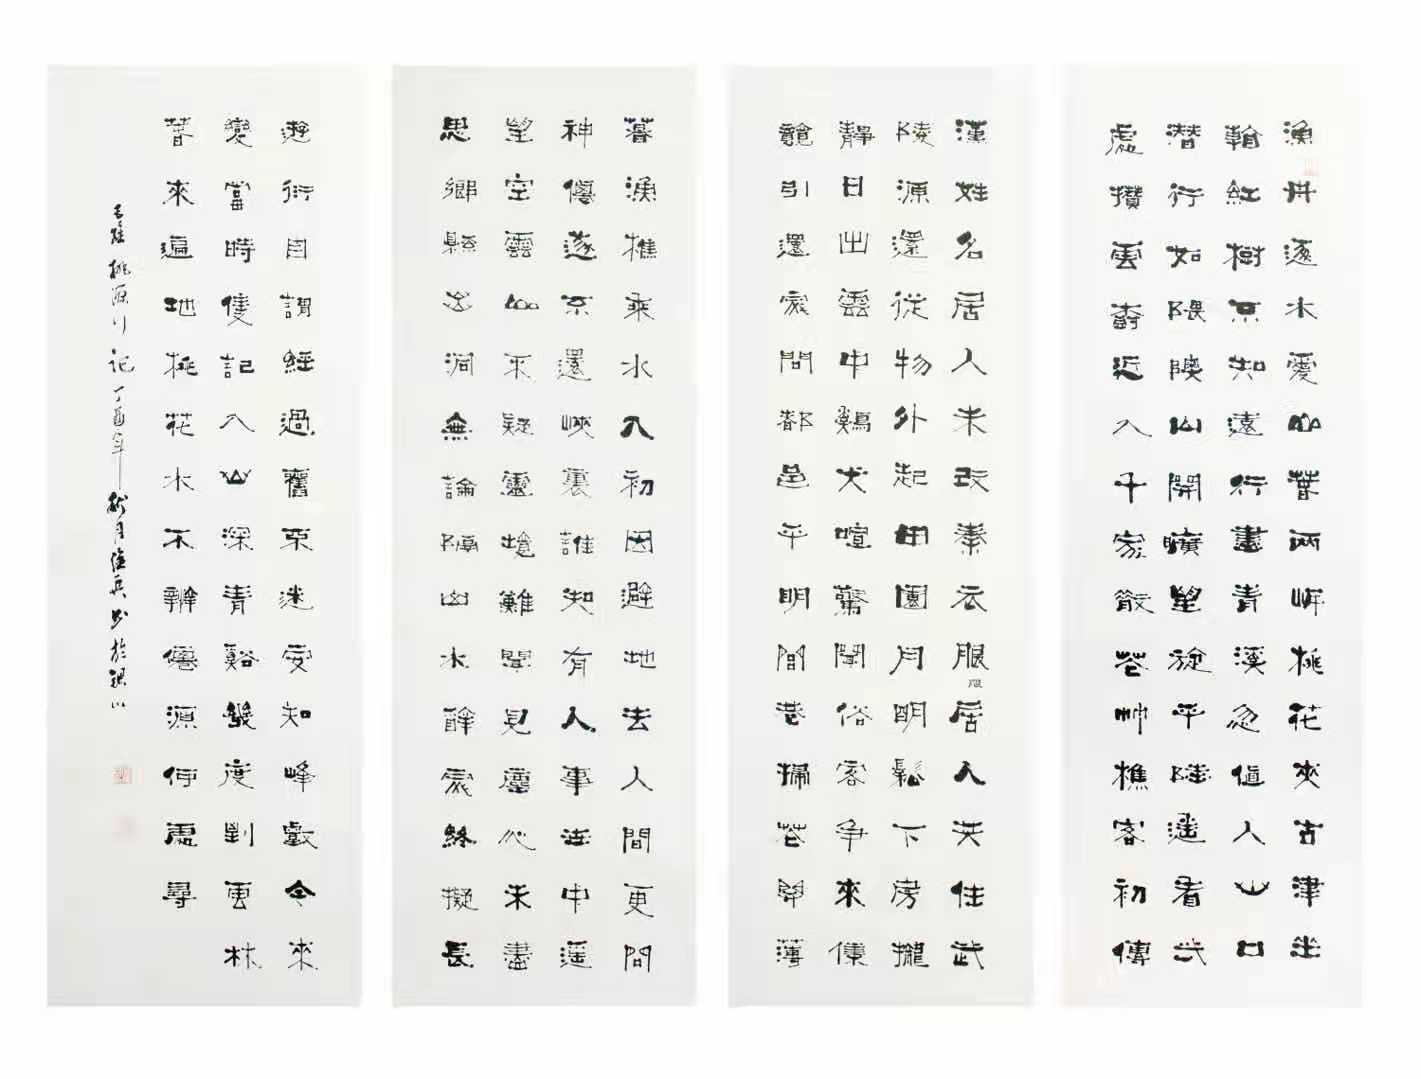 漁舟逐水愛山葉兩岸桃花夾古津坐
輪紅樹不知遠行盡青溪忽值人山口
潛行如隈隩山開曠望旋平陸遙看弌
處攢雲樹近入千家散花竹樵客初傳
漢姓名居人未改秦衣服居人共住武
服
陵源還從物外起田園月明鬆下房攏
靜日出雲中鷄犬喧驚聞俗客爭來集
競引還家問都邑平明閭巷掃花開薄
暮漁樵乘水入初因避地去人間更問
神僊遂不還峽裏誰知有人事世中遥
望空雲山不疑靈境難聞見塵心未盡
思鄉縣出洞無論隔山水辭家終擬長
遊衍自謂經過舊不迷安知峰壑今來
變當時隻記入山深青谿幾度到雲林
春來遍地桃花水不辨僊源何處尋
王維桃源行記丁酉年秋月隆兵書於銀川